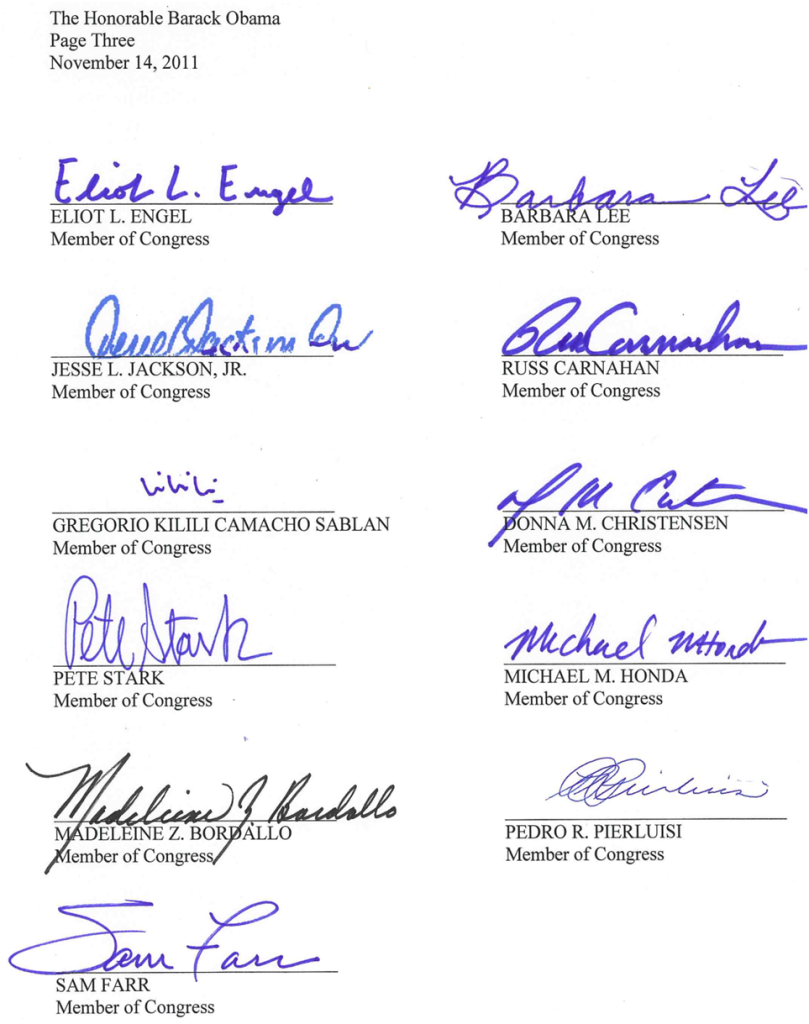 The Honorable Barack Obama
Page Three
November 14, 2011
Eliot L. Engel
ELIOT L. ENGEL
Member of Congress
Barbara Lee
BARBARA LEE
Member of Congress
Jesse L Jackson Jr
JESSE L. JACKSON, JR.
Member of Congress
Russ Carnahan
RUSS CARNAHAN
Member of Congress
Kilili
GREGORIO KILILI CAMACHO SABLAN
Member of Congress
DONNA M. CHRISTENSEN
Member of Congress
Pete Stark
PETE STARK
Member of Congress
Michael M Honda
MICHAEL M. HONDA
Member of Congress
Madeleine Z. Bordallo
MADELEINE Z. BORDALLO
Member of Congress
Pierluisi
PEDRO R. PIERLUISI
Member of Congress
Sam Farr
SAM FARR
Member of Congress